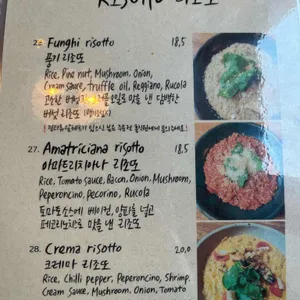 RISOTTO 리조또
26. Funghi risotto 18,5
풍기 리조또
Rice, Pine nut, Mushroom, Onion,
Cream sauce, truffle oil, Reggiano, Rucola
고소한 버섯과 오일로 맛을 낸 담백한
버섯 리조또
27. Amatriciana risotto 18,5
아마트리치아나 리조또
Rice, Tomato sauce, Bacon, Onion, Mushroom,
Peperoncino, Pecorino, Rucola
토마토소스에 베이컨, 양파를 넣고
페코리노치즈로 맛을 낸 리조또
28. Crema risotto 20,0
크레마 리조또
Rice, Chili pepper, Peperoncino, Shrimp,
Cream Sauce, Mushroom, Onion, Tomato